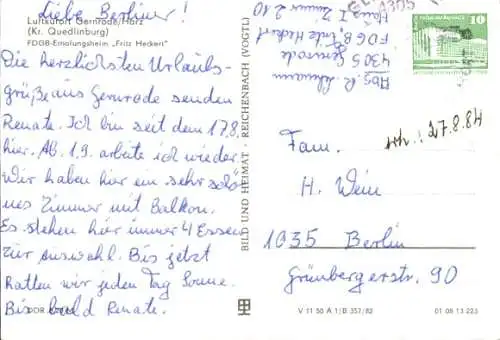 Liebe Berliner!
Luftkurort Gernrode/Harz
(Kr. Quedlinburg)
FDGB-Erholungsheim „Fritz Heckert"
Die herzlichsten Urlaubs-
grüße aus Gernrode senden
Renate. Ich bin seit dem 17.8.
hier. Ab 1.9. arbeite ich wieder.
Wir haben hier ein sehr schö-
nes Zimmer mit Balkon.
Es stehen hier immer 4 Essen
zur Auswahl. Bis jetzt
hatten wir jeden Tag Sonne.
Bis bald Renate.
DDR
BILD UND HEIMAT · REICHENBACH (VOGTL)
Abs. R.
4305 Gernrode
FDGB Fritz Heckert
Haus I Zimmer 210
4305
10
27.8.84
Fam.
H. Wein
1035 Berlin
Grünbergerstr. 90
V 11 50 A 1/B 357/82
01 08 13 223